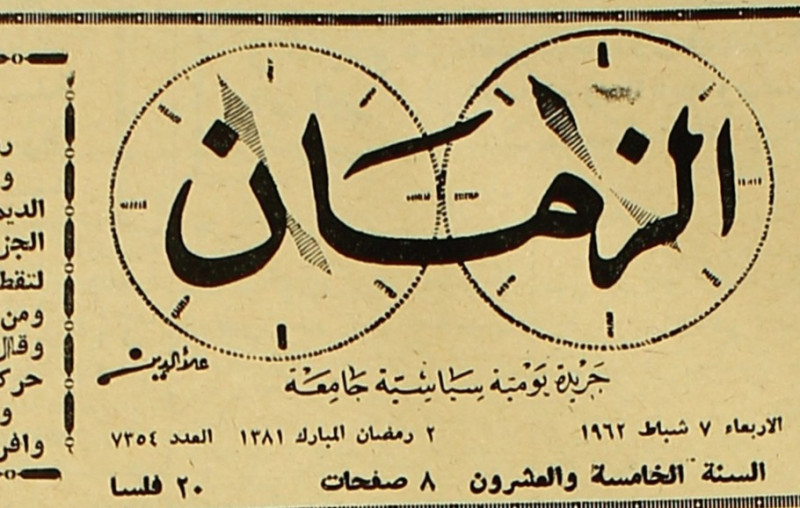 الزمان
علاء الدين
جريدة يومية سياسية جامعة
الاربعاء ٧ شباط ١٩٦٢ ٢ رمضان المبارك ١٣٨١ العدد ٧٣٥٤
السنة الخامسة والعشرون ٨ صفحات ٢٠ فلسا
و
الجز
ومن
وقال
حركـ
و
وافر